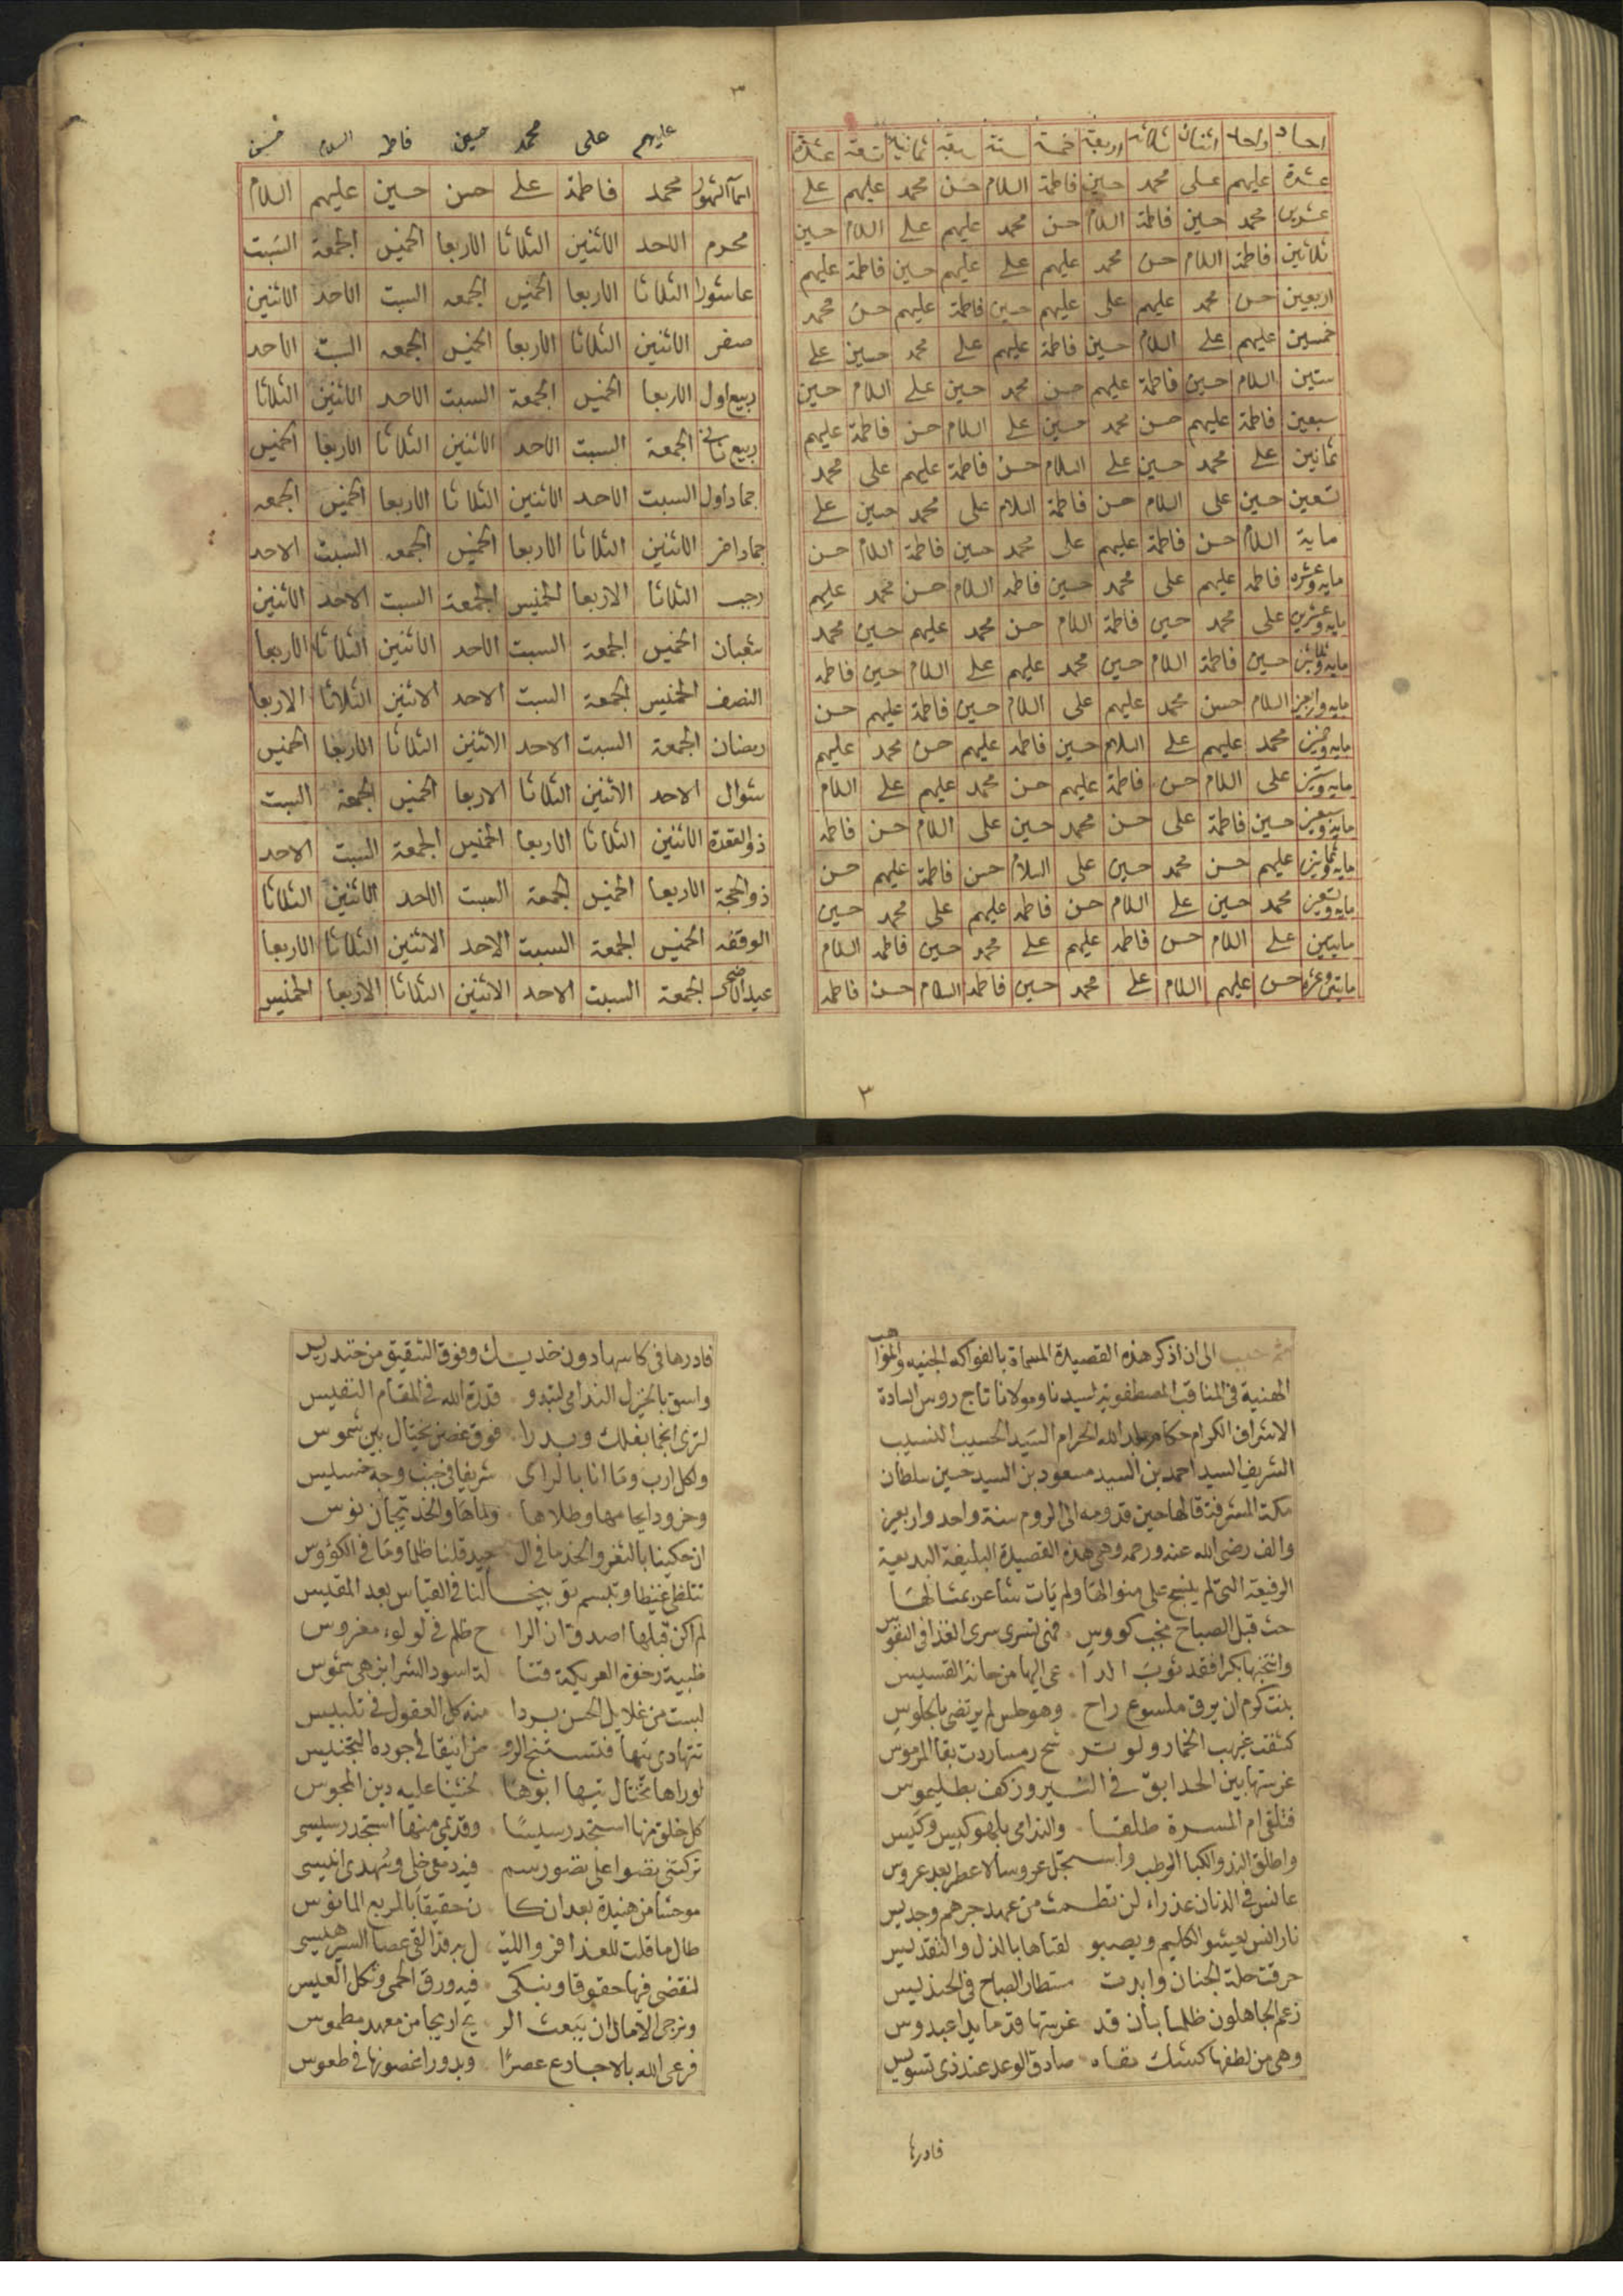 احاد واحد اثنان ثلاثة اربعة خمسة ستة سبعة ثمانية تسعة عشرة
عشرة عليهم على محمد حسين فاطمة السلام حسن محمد عليهم على
عشرين محمد حسين فاطمة السلام حسن محمد عليهم على السلام حسين
ثلاثين فاطمة السلام حسن محمد عليهم على عليهم حسين فاطمة عليهم
اربعين حسن محمد عليهم على عليهم حسين فاطمة عليهم حسن محمد
خمسين عليهم على السلام حسين فاطمة عليهم على محمد حسين على
ستين السلام حسين فاطمة عليهم حسن محمد حسين على السلام حسين
سبعين فاطمة عليهم حسن محمد حسين على السلام حسن فاطمة عليهم
ثمانين على محمد حسين على السلام حسن فاطمة عليهم على محمد
تسعين حسين على السلام حسن فاطمة السلام على محمد حسين على
ماية السلام حسن فاطمة عليهم على محمد حسين فاطمة السلام حسن
مايه وعشره فاطمه عليهم على محمد حسين فاطمه السلام حسن محمد عليهم
مايه وعشرين على محمد حسين فاطمة السلام حسن محمد عليهم حسين محمد
مايه وثلاثين حسين فاطمة السلام حسين محمد عليهم على السلام حسين فاطمه
مايه واربعين السلام حسن محمد عليهم على السلام حسين فاطمة عليهم حسن
مايه وخمسين محمد عليهم على السلام حسين فاطمه عليهم حسن محمد عليهم
مايه وستين على السلام حسن فاطمة عليهم حسن محمد عليهم على السلام
مايه وسبعين حسين فاطمة على حسن محمد حسين على السلام حسن فاطمه
مايه وثمانين عليهم حسن محمد حسين على السلام حسن فاطمة عليهم حسن
مايه وتسعين محمد حسين على السلام حسن فاطمه عليهم على محمد حسين
مايتين على السلام حسن فاطمه عليهم على محمد حسين فاطمه السلام
مايتين وعشره حسن عليهم السلام على محمد حسين فاطمه السلام حسن فاطمه
٣
٣
عليهم على محمد حسين فاطمه السلام حسن
اسما الشهور محمد فاطمة على حسن حسين عليهم السلام
محرم الاحد الاثنين الثلاثا الاربعا الخميس الجمعة السبت
عاشورا الثلاثا الاربعا الخميس الجمعه السبت الاحد الاثنين
صفر الاثنين الثلاثا الاربعا الخميس الجمعه السبت الاحد
ربيع اول الاربعا الخميس الجمعة السبت الاحد الاثنين الثلاثا
ربيع ثاني الجمعة السبت الاحد الاثنين الثلاثا الاربعا الخميس
جماد اول السبت الاحد الاثنين الثلاثا الاربعا الخميس الجمعه
جماد اخر الاثنين الثلاثا الاربعا الخميس الجمعه السبت الاحد
رجب الثلاثا الاربعا الخميس الجمعة السبت الاحد الاثنين
شعبان الخميس الجمعة السبت الاحد الاثنين الثلاثا الاربعا
النصف الخميس الجمعة السبت الاحد الاثنين الثلاثا الاربعا
رمضان الجمعة السبت الاحد الاثنين الثلاثا الاربعا الخميس
شوال الاحد الاثنين الثلاثا الاربعا الخميس الجمعة السبت
ذوالقعدة الاثنين الثلاثا الاربعا الخميس الجمعة السبت الاحد
ذوالحجة الاربعا الخميس الجمعة السبت الاحد الاثنين الثلاثا
الوقفه الخميس الجمعة السبت الاحد الاثنين الثلاثا الاربعا
عيد الاضحى الجمعة السبت الاحد الاثنين الثلاثا الاربعا الخميس
الى ان اذكر هذه القصيدة المسماة بالفواكه الجنيه والمواهب
الهنية في المناقب المصطفوية لسيدنا ومولانا تاج روس السادة
الاشراف الكرام حكام بلد الله الحرام السيد الحسيب النسيب
الشريف السيد احمد بن السيد مسعود بن السيد حسين سلطان
مكة المشرفة قالها حين قدومه الى الروم سنة واحد واربعين
والف رضى الله عنه ورحمه وهى هذه القصيدة البليغة البديعية
الرفيعة التى لم ينسج على منوالها ولم يات شاعر بمثالها
حث قبل الصباح نجب كووس فهى تسرى سرى الغذا فى النفوس
وانتخبها بكرا فقد ثوب الدا عى اليها من حانة القسيس
بنت كرم ان يرق ملسوع راح وهو طس لم يرتضى بالجلوس
كشفت غيهب الخمار ولو تر شح رمسا ردت بقا المرموس
غرستها بين الحدايق فى السير وز كف بطليموس
فتلقى ام المسرة طلقا والندامى بلهو كيس وكيس
واطلق الند والكبا الرطب واستجل عروسا لا عطر بعد عروس
عانس فى الدنان عذراء لن تطمث من عهد جرهم وجديس
نار انس يعيشو الكليم ويصبو لقباها بالذل والتقديس
حرقت حلة الجنان وابدت مستطار الصباح فى الحندليس
زعم الجاهلون ظلما بأن قد غرستها قدما يدا عبدوس
وهى من لطفها كشك صادق الوعد عند ذى تسويس
فادرها
فادرها فى كاسها دون خديك وفوق الشقيق من خندريس
واسق بالخيزل الندامى لتبدو قدرة الله فى المقام النفيس
لترى انجما بفلك وبدرا فوق غصن يختال بين شموس
ولكل ارب وما انا بالراى شريفا فى جنب وجه خسيس
وخرود ايحا مها وطلاها ولماها والخد تيجان نوس
ان حكينا بالثغر والخد ما فى ال جيد قلنا ظلما وما فى الكؤوس
تتلظى غيظا وتبسم توبيخا لنا فى القياس بعد المقيس
لم اكن قبلها اصدق ان الرا ح ظلم فى لولوء مغروس
ظبية رخوة العريكة فتا لة اسود الشرا بزهى شموس
لبست من غلايل الحسن بردا منه كل العقول فى تلبيس
تتهادى تيها فتستنتج الرو من انيقا فى جوده التجنيس
لو راها تختال تيها ابوها لخشينا عليه دين المجوس
كل خلق منها استجد رسيسا وقديمى منها استجد رسيسى
تركتنى نضوا على نضو رسم فيه دمعى خلى وسهدى انيسى
موحشا من هنيدة بعد ان كا ن حقيقا بالمربع المانوس
طال ما قلت للعذافر والليـ ل به قد القى عصا السير هيسى
لنقضى فيها حقوقا ونبكى فيه ورق الحمى وثكل العيس
ونرجى الامال ان يبعث الر يح اريجا من معهد مطموس
فرعى الله بالاجارع عصرًا وبدورا غصونها فى طعوس